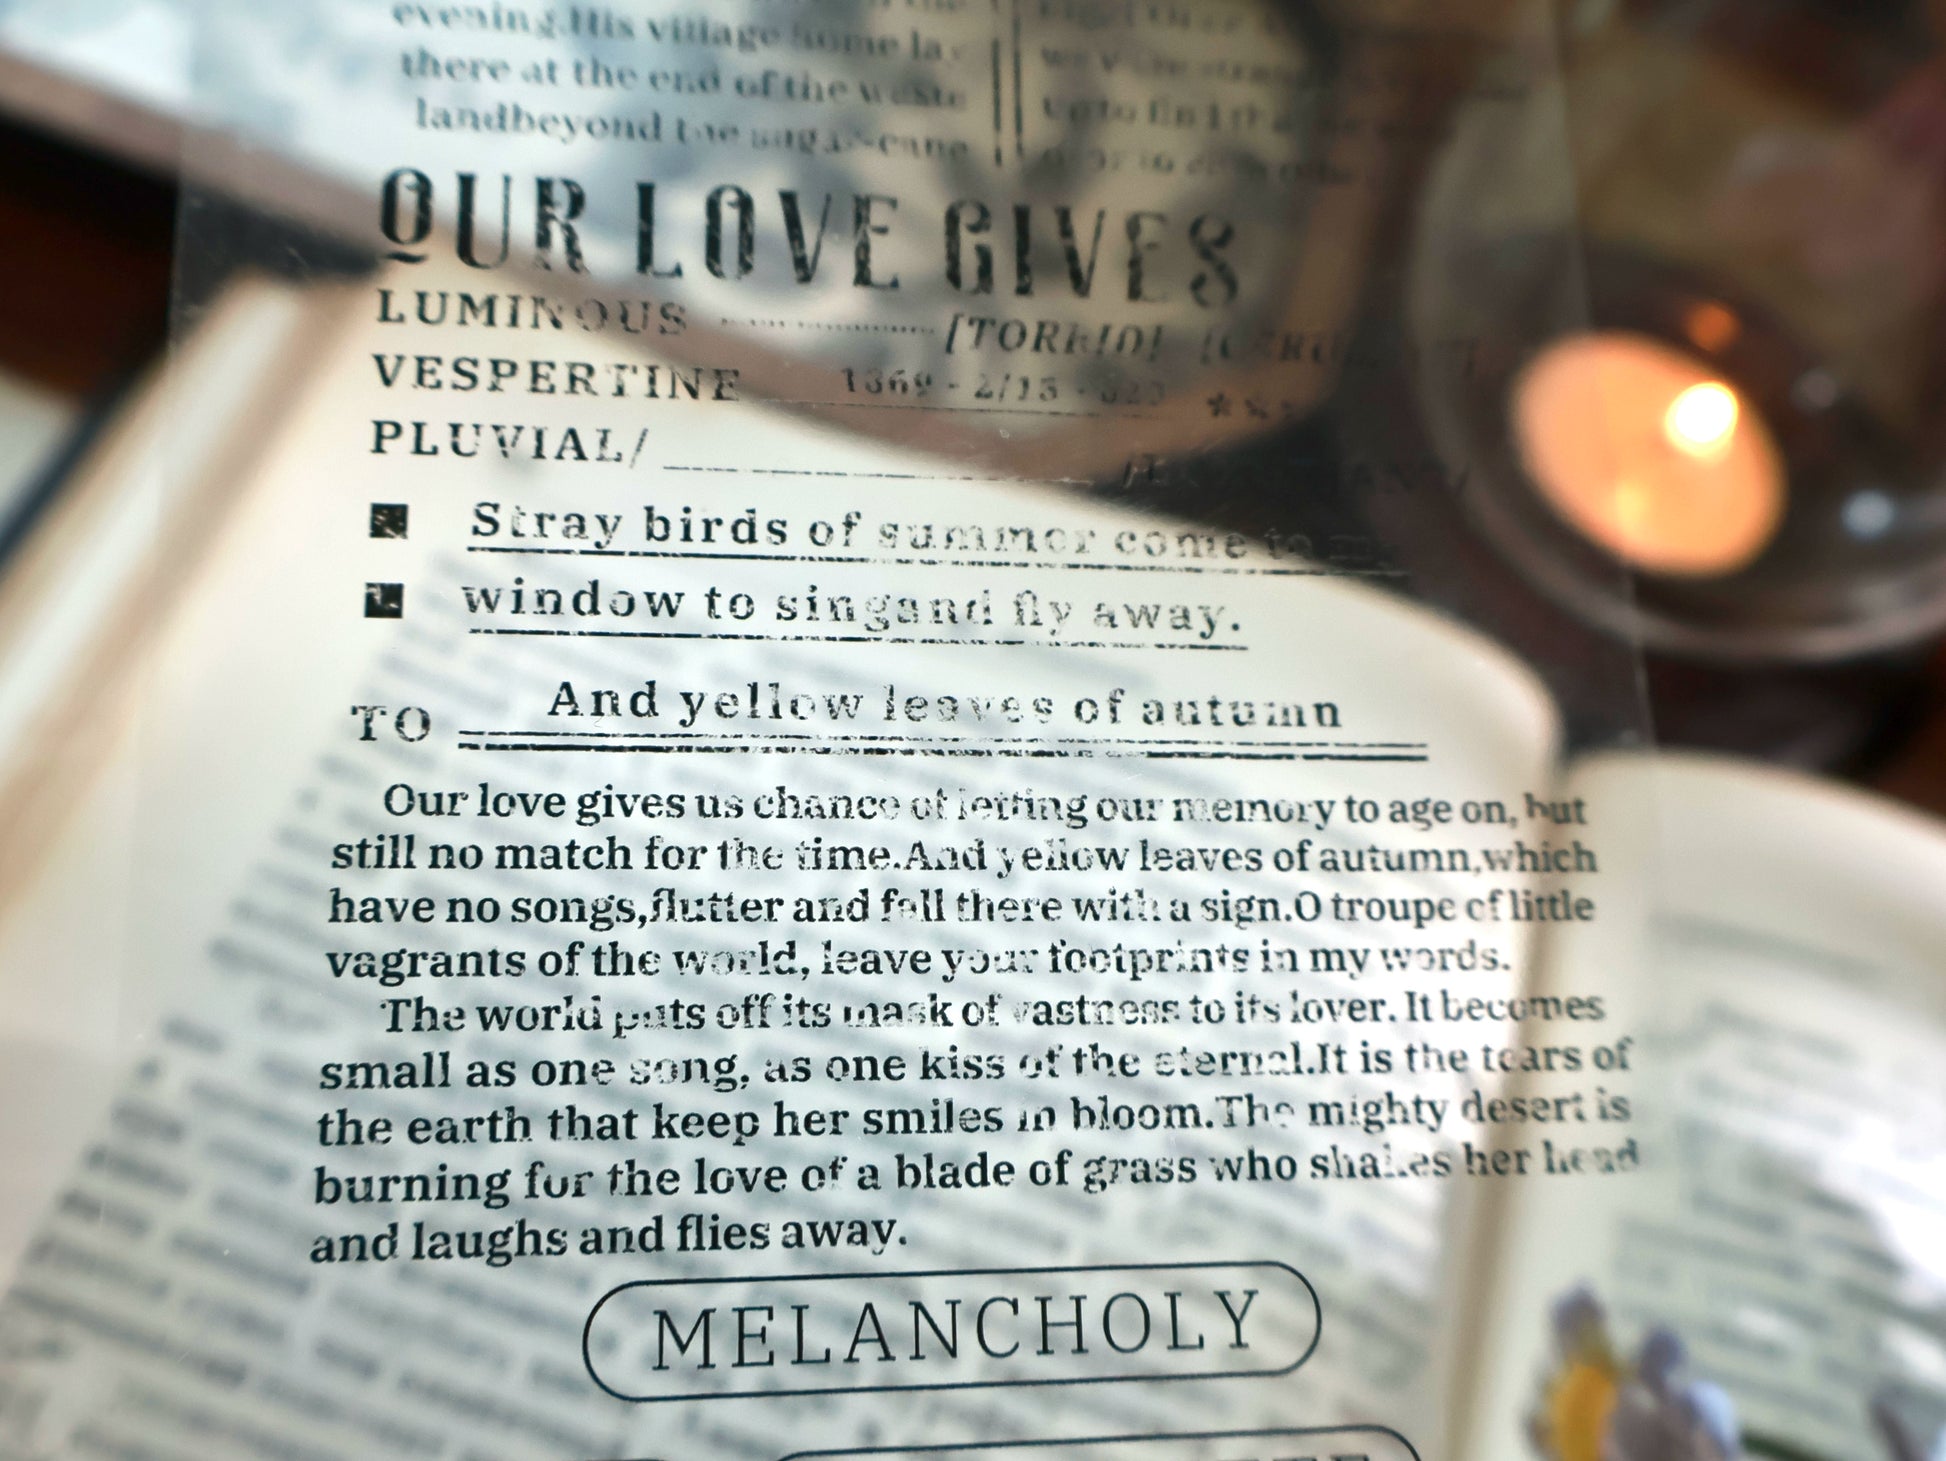 evening.His village home lay
there at the end of the waste
landbeyond the sugar-cane
OUR LOVE GIVES
LUMINOUS [TORRID]
VESPERTINE
PLUVIAL/
Stray birds of summer come to my
window to singand fly away.
TO And yellow leaves of autumn
Our love gives us chance of letting our memory to age on, but
still no match for the time.And yellow leaves of autumn,which
have no songs,flutter and fall there with a sign.O troupe of little
vagrants of the world, leave your footprints in my words.
The world puts off its mask of vastness to its lover. It becomes
small as one song, as one kiss of the eternal.It is the tears of
the earth that keep her smiles in bloom.The mighty desert is
burning for the love of a blade of grass who shakes her head
and laughs and flies away.
MELANCHOLY